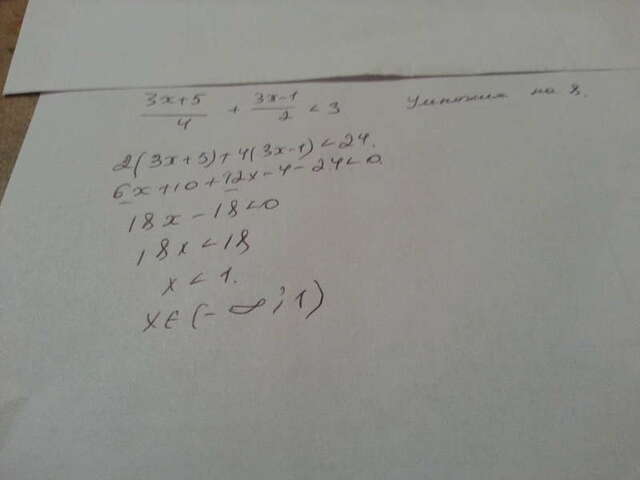 (3x+5)/4 + (3x-1)/2 < 3 Умножим на 8.
2(3x+5)+4(3x-1)<24.
6x+10+12x-4-24<0
18x-18<0
18x<18
x<1.
x∈(-∞;1)